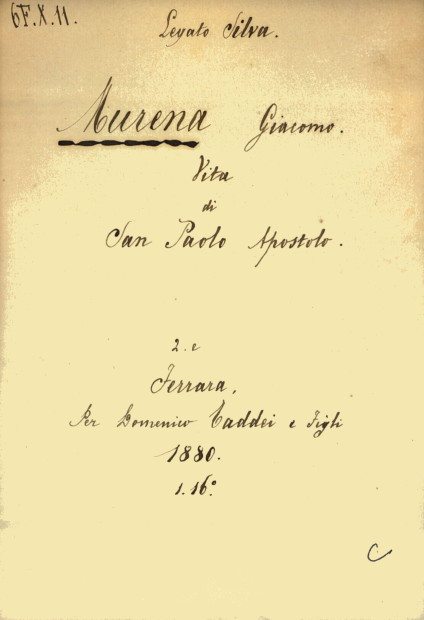 6F.X.11.
Legato Silva.
Murena Giacomo.
Vita
di
San Paolo Apostolo.
2. e
Ferrara,
Per Domenico Taddei e Figli
1880.
1. 16º
C